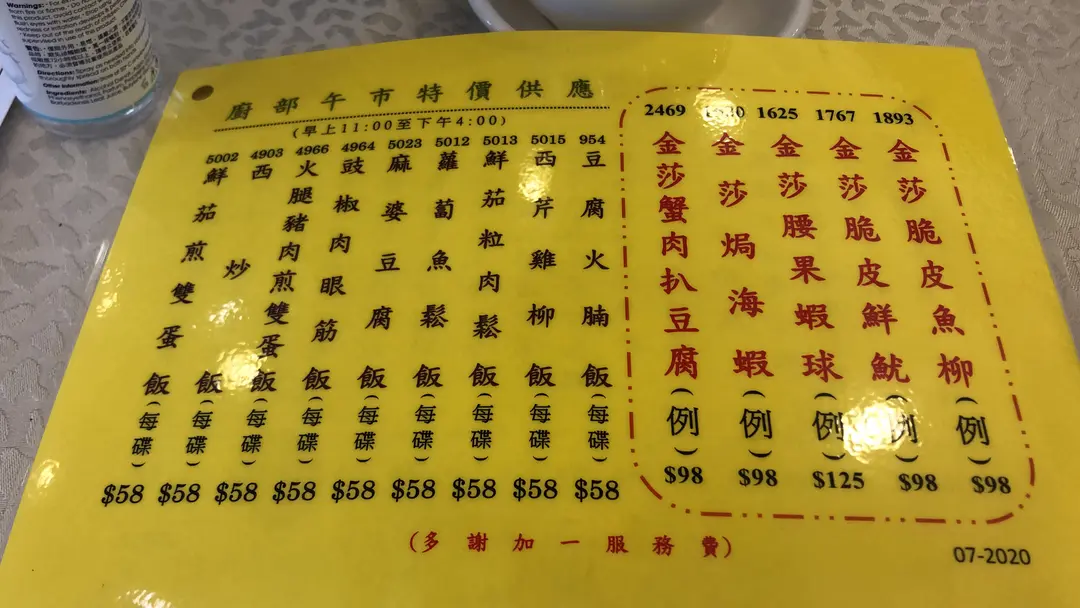 Warnings:
Directions:
Other information:
Ingredients: Alcohol
廚部午市特價供應
(早上11:00至下午4:00)
5002
鮮茄煎雙蛋飯(每碟)
$58
4903
西炒飯(每碟)
$58
4966
火腿豬肉煎雙蛋飯(每碟)
$58
4964
豉椒肉眼筋飯(每碟)
$58
5023
麻婆豆腐飯(每碟)
$58
5012
蘿蔔魚鬆飯(每碟)
$58
5013
鮮茄粒肉鬆飯(每碟)
$58
5015
西芹雞柳飯(每碟)
$58
954
豆腐火腩飯(每碟)
$58
2469
金莎蟹肉扒豆腐(例)
$98
金莎焗海蝦(例)
$98
1625
金莎腰果蝦球(例)
$125
1767
金莎脆皮鮮魷(例)
$98
1893
金莎脆皮魚柳(例)
$98
(多謝加一服務費)
07-2020